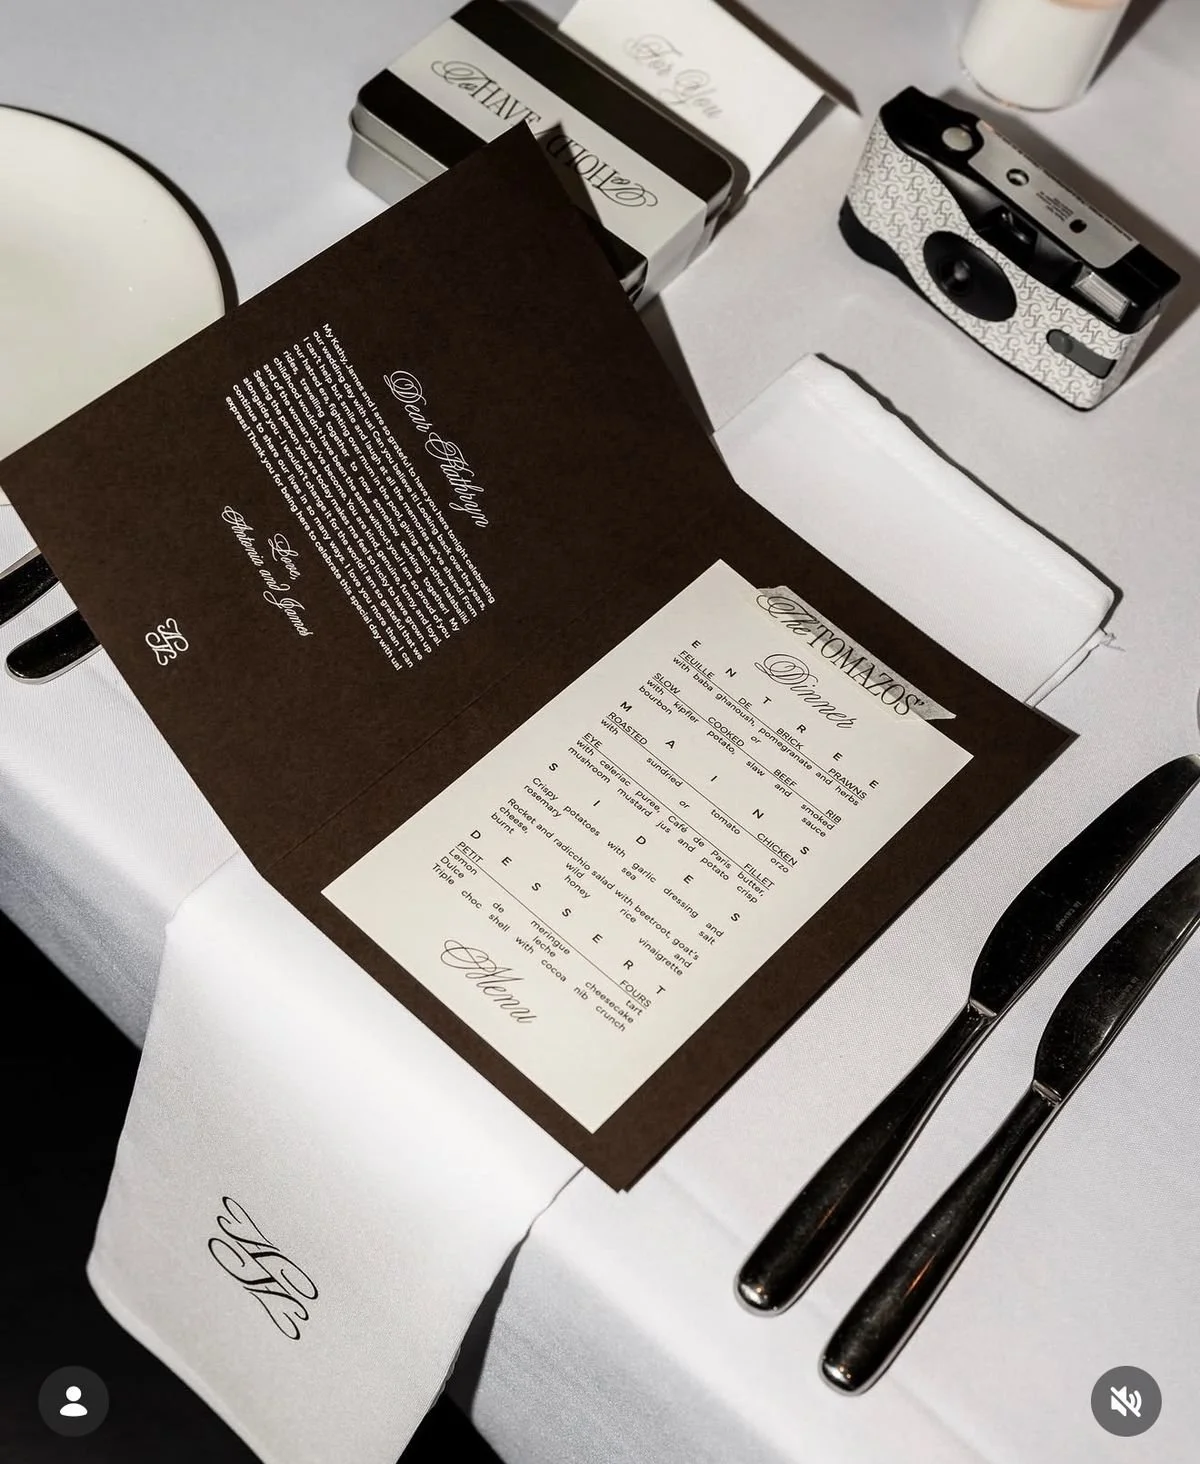 For You
To HAVE
To HOLD
Dear Kathryn
My Kathy, James and I are so grateful to have you here tonight celebrating
our wedding day with us! Can you believe it! Looking back over the years,
I can't help but smile and laugh at all the memories we've shared! From
our hatred era, fighting over mum in the pool, giving each other halabaliki
rides, travelling together to now somehow working together! My
childhood wouldn't have been the same without you! I am so proud of you
and of the woman you've become. You are kind, genuine, funny, and loyal.
Seeing the person you are today makes me feel so lucky to have grown up
alongside you - I wouldn't change it for the world! I am so grateful that we
continue to share our lives in so many ways. I love you more than I can
express! Thank you for being here to celebrate this special day with us!
Love,
Antonia and James
The TOMAZOS'
Dinner
ENTREE
FEUILLE DE BRICK PRAWNS
with baba ghanoush, pomegranate and herbs
or
SLOW COOKED BEEF RIB
with kipfler potato, slaw and smoked
bourbon sauce
MAINS
ROASTED CHICKEN
with sundried tomato orzo
or
EYE FILLET
with celeriac puree, Café de Paris butter,
mushroom mustard jus and potato crisp
SIDES
Crispy potatoes with garlic dressing and
rosemary sea salt
Rocket and radicchio salad with beetroot, goat's
cheese, wild rice and
burnt honey vinaigrette
DESSERT
PETIT FOURS
Lemon meringue tart
Dulce de leche cheesecake
Triple choc shell with cocoa nib crunch
Menu